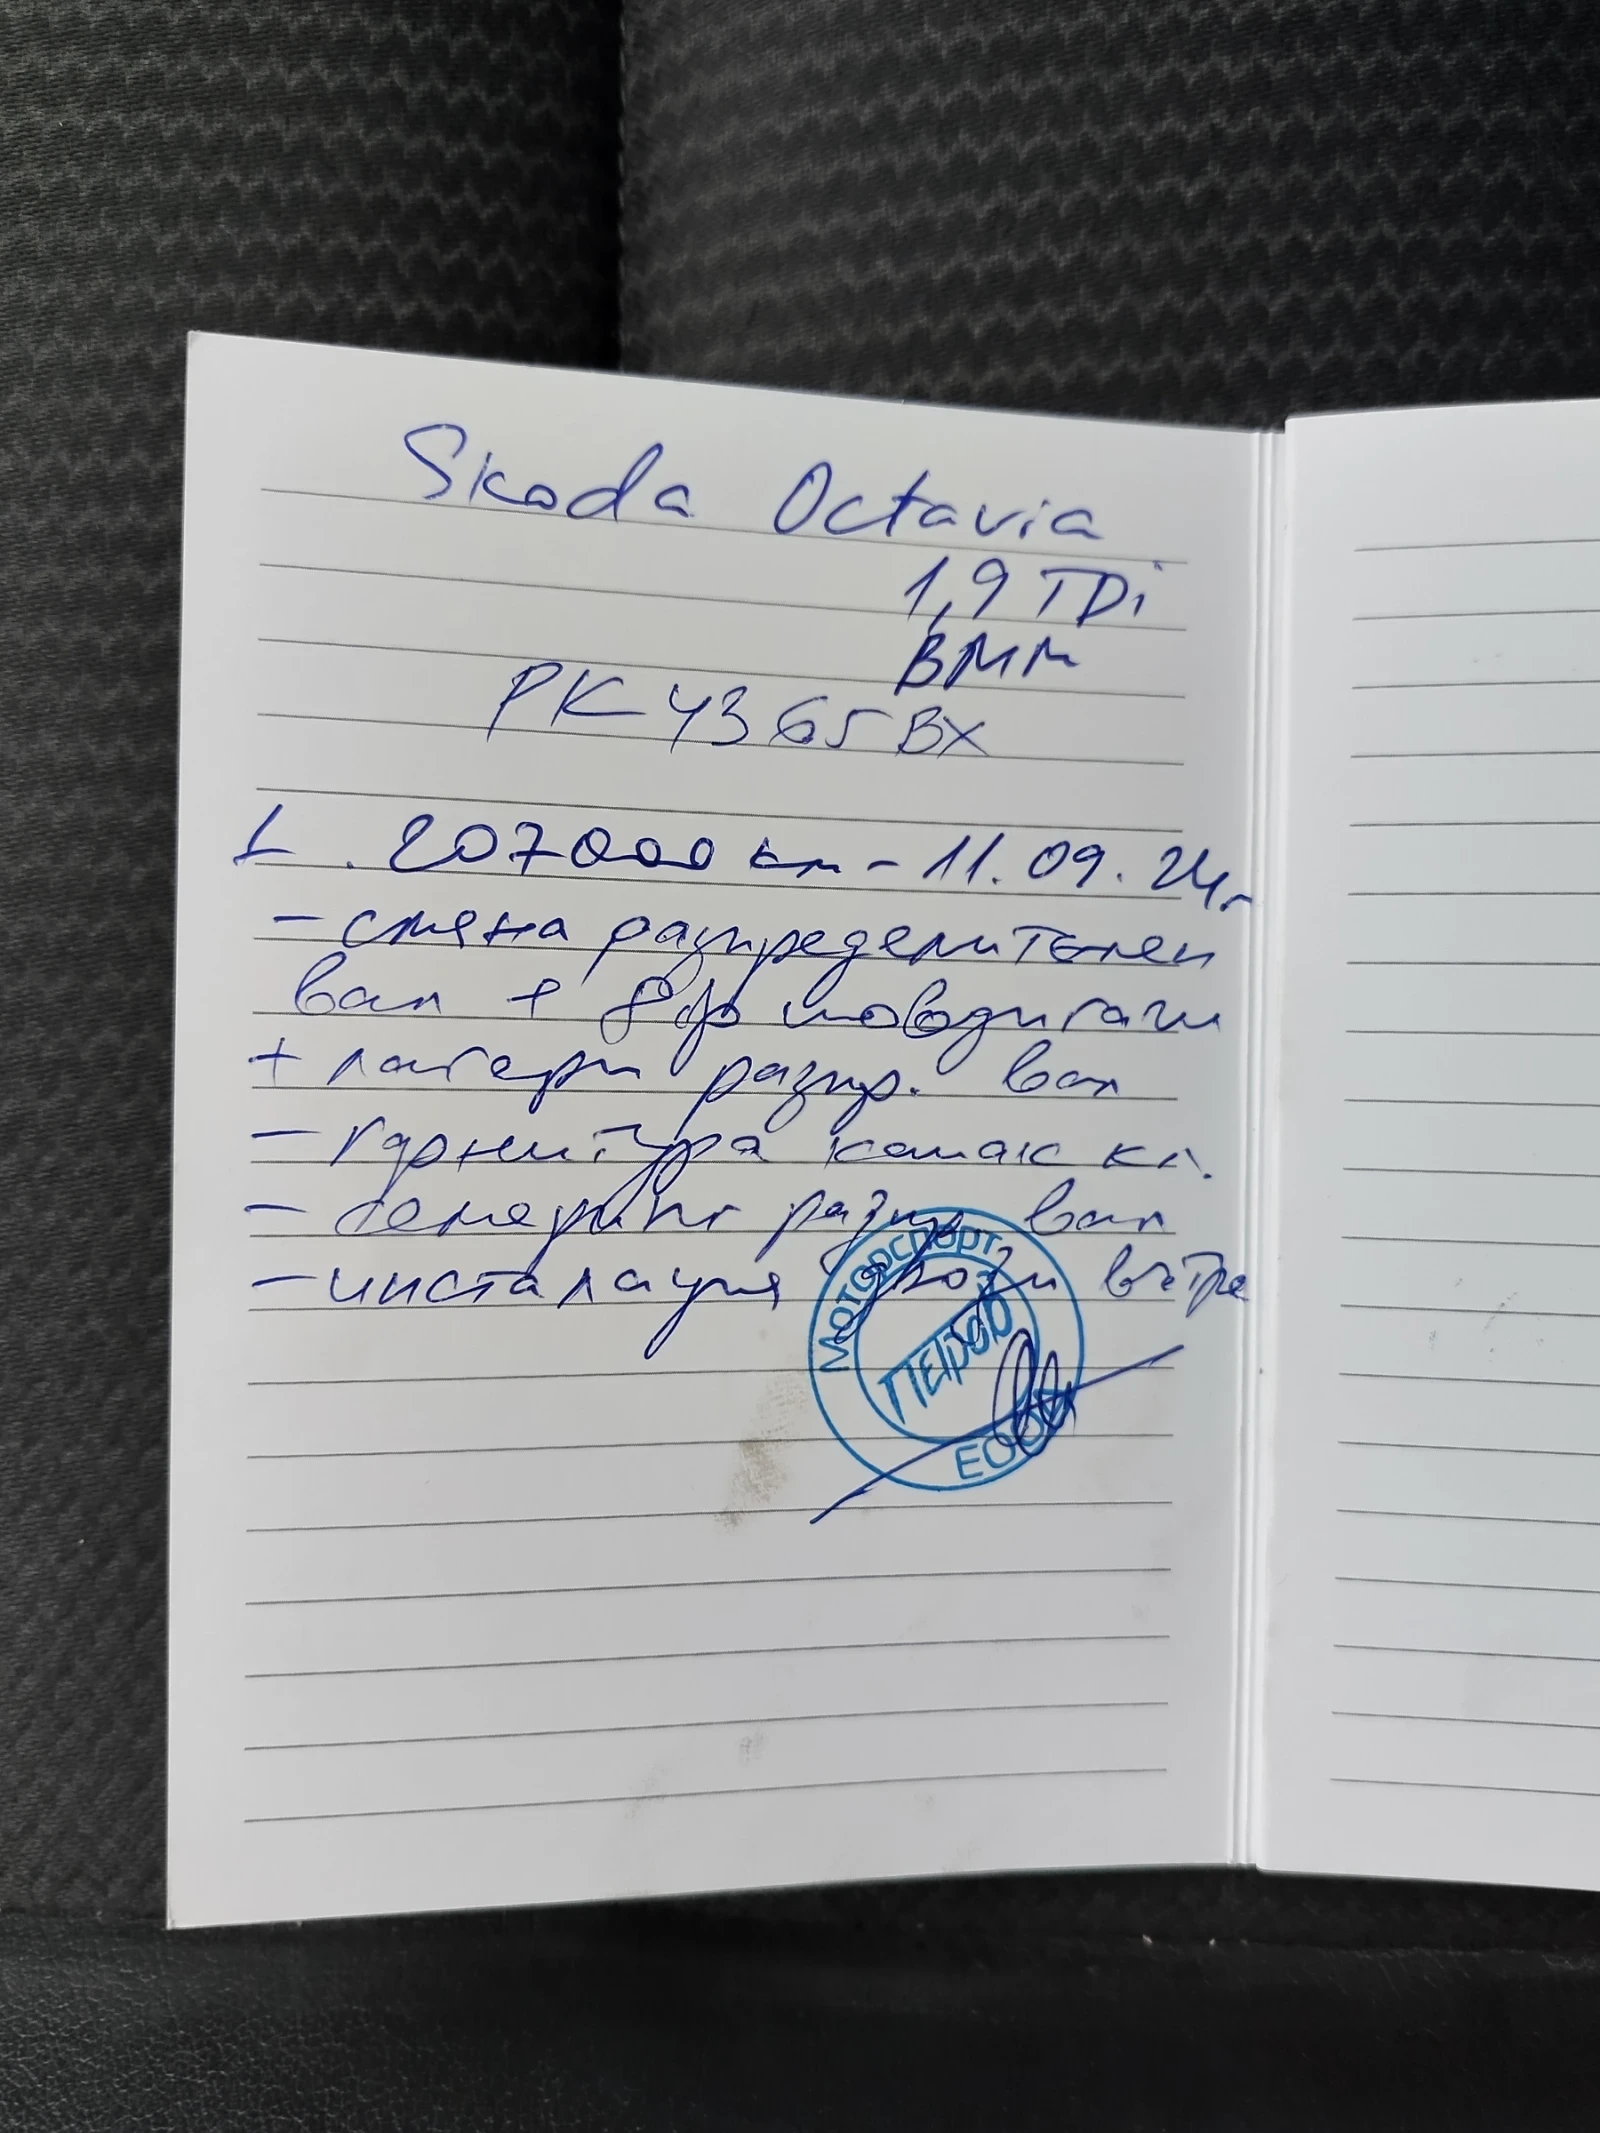 Skoda Octavia
1,9 TDi
BMM
PK 4365 BX
1. 207000 км - 11.09.24г
- смяна разпределителен
вал + 8 бр повдигачи
+ лагери разпр. вал
- гарнитура капак кл.
- семеринг разпр вал
- инсталация дюзи вътре
Моторспорт
ПЕТРОВ
ЕООД